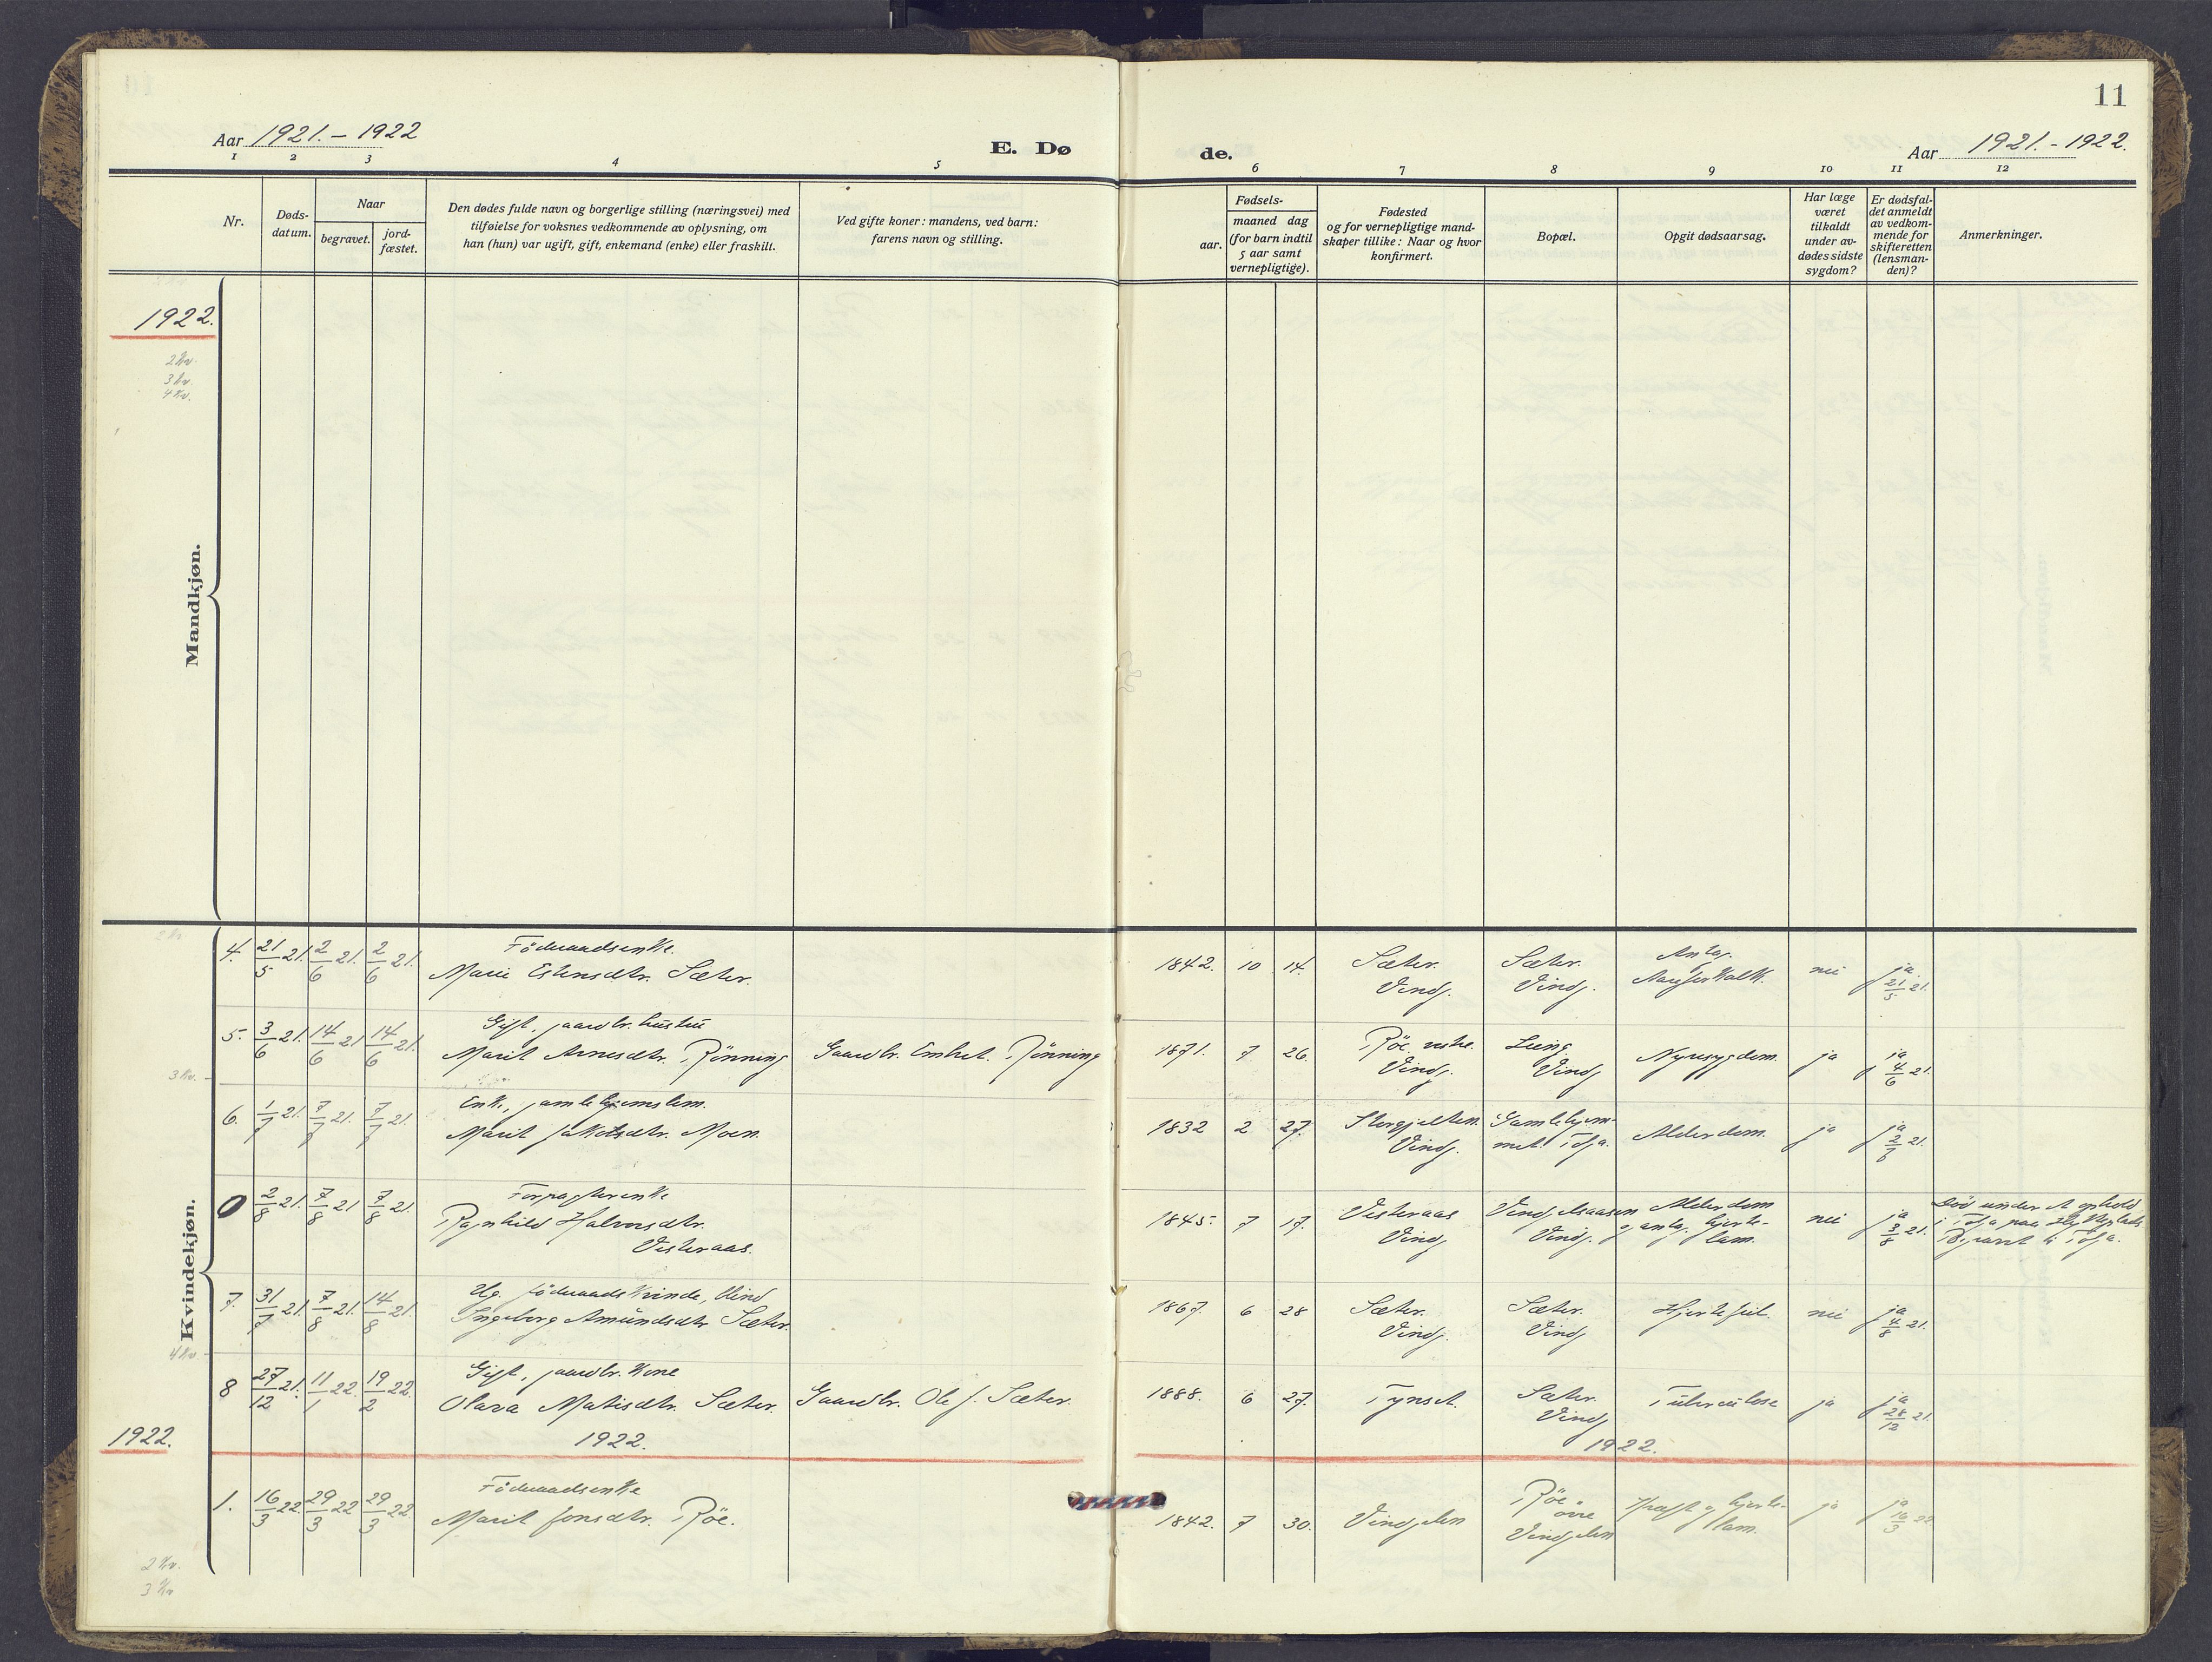 11
Aar 1921.-1922
E. Dø
de.
Aar 1921.-1922.
1 2 3 4 5 6 7 8 9 10 11 12
Nr.
Døds-
datum.
Naar
begravet.
jord-
fæstet.
Den dødes fulde navn og borgerlige stilling (næringsvei) med
tilføielse for voksnes vedkommende av oplysning, om
han (hun) var ugift, gift, enkemand (enke) eller fraskilt.
Ved gifte koner: mandens, ved barn:
farens navn og stilling.
Fødsels-
aar.
maaned dag
(for barn indtil
5 aar samt
vernepligtige).
Fødested
og for vernepligtige mand-
skaper tillike: Naar og hvor
konfirmert.
Bopæl.
Opgit dødsaarsag.
Har læge
været
tilkaldt
under av-
dødes sidste
sygdom?
Er dødsfal-
det anmeldt
av vedkom-
mende for
skifteretten
(lensman-
den)?
Anmerkninger.
1922.
2 Kv.
3 Kv.
4 Kv.
Mandkjøn.
Kvindekjøn.
4. 21/5 21. 2/6 21. 2/6 21.
Föderaadsenke.
Marie Estensdtr. Sæter.
1842. 10 14.
Sæter.
Vingj.
Sæter.
Vingj.
Antag.
Aareforkalk.
nei
ja
21/5 21.
5. 3/6 21. 14/6 21 14/6 21.
Gift, gaardbr. hustru
Marit Arnesdtr. Rönning
Gaardbr. Embret. Rönning
1871. 7 26.
Röe vestre
Vingj.
Vingj
Nyresygdom.
ja
ja
4/6 21.
3 Kv.
6. 1/7 21. 7/7 21. 7/7 21.
Enke, gamlehjemslem.
Marit Jakobsdtr. Moen.
1832 2 27.
Vingj.
Gamlehjem-
met Tolga.
Alderdom.
ja
ja
2/7 21.
0 2/8 21. 7/8 21 7/8 21.
Forpagterenke
Ragnhild Halvorsdtr.
Vesteraas.
1845. 7 17.
Vesteraas
Vingj
Vingelsaasen
Vingj.
Alderdom
og antag. hjerte-
lam.
nei
ja
3/8 21.
Död under et ophold
i Tolga
Begravet i Tolga.
7. 31/7 21. 7/8 21. 14/8 21.
Ug. föderaadskvinde, blind
Ingeborg Amundsdtr Sæter.
1867. 6 28
Sæter.
Vingj.
Sæter.
Vingj
Hjertefeil.
nei
ja
4/8 21.
4 Kv.
8 27/12 21. 11/1 22. 19/2 22.
Gift, gaardbr. kone
Olava Matisdtr. Sæter.
Gaardbr. Ole J. Sæter.
1888. 6 27.
Tynset.
Sæter.
Vingj
Tuberculose
ja
ja
28/12 21.
1922.
1922.
1922.
1. 16/3 22. 29/3 22 29/3 22.
Föderaadsenke
Marit Jonsdtr. Röe.
1842. 7 30.
Vingelen
Röe
övre
Vingelen
og hjerte-
lam.
ja
ja
16/3 22
2 Kv.
3 Kv